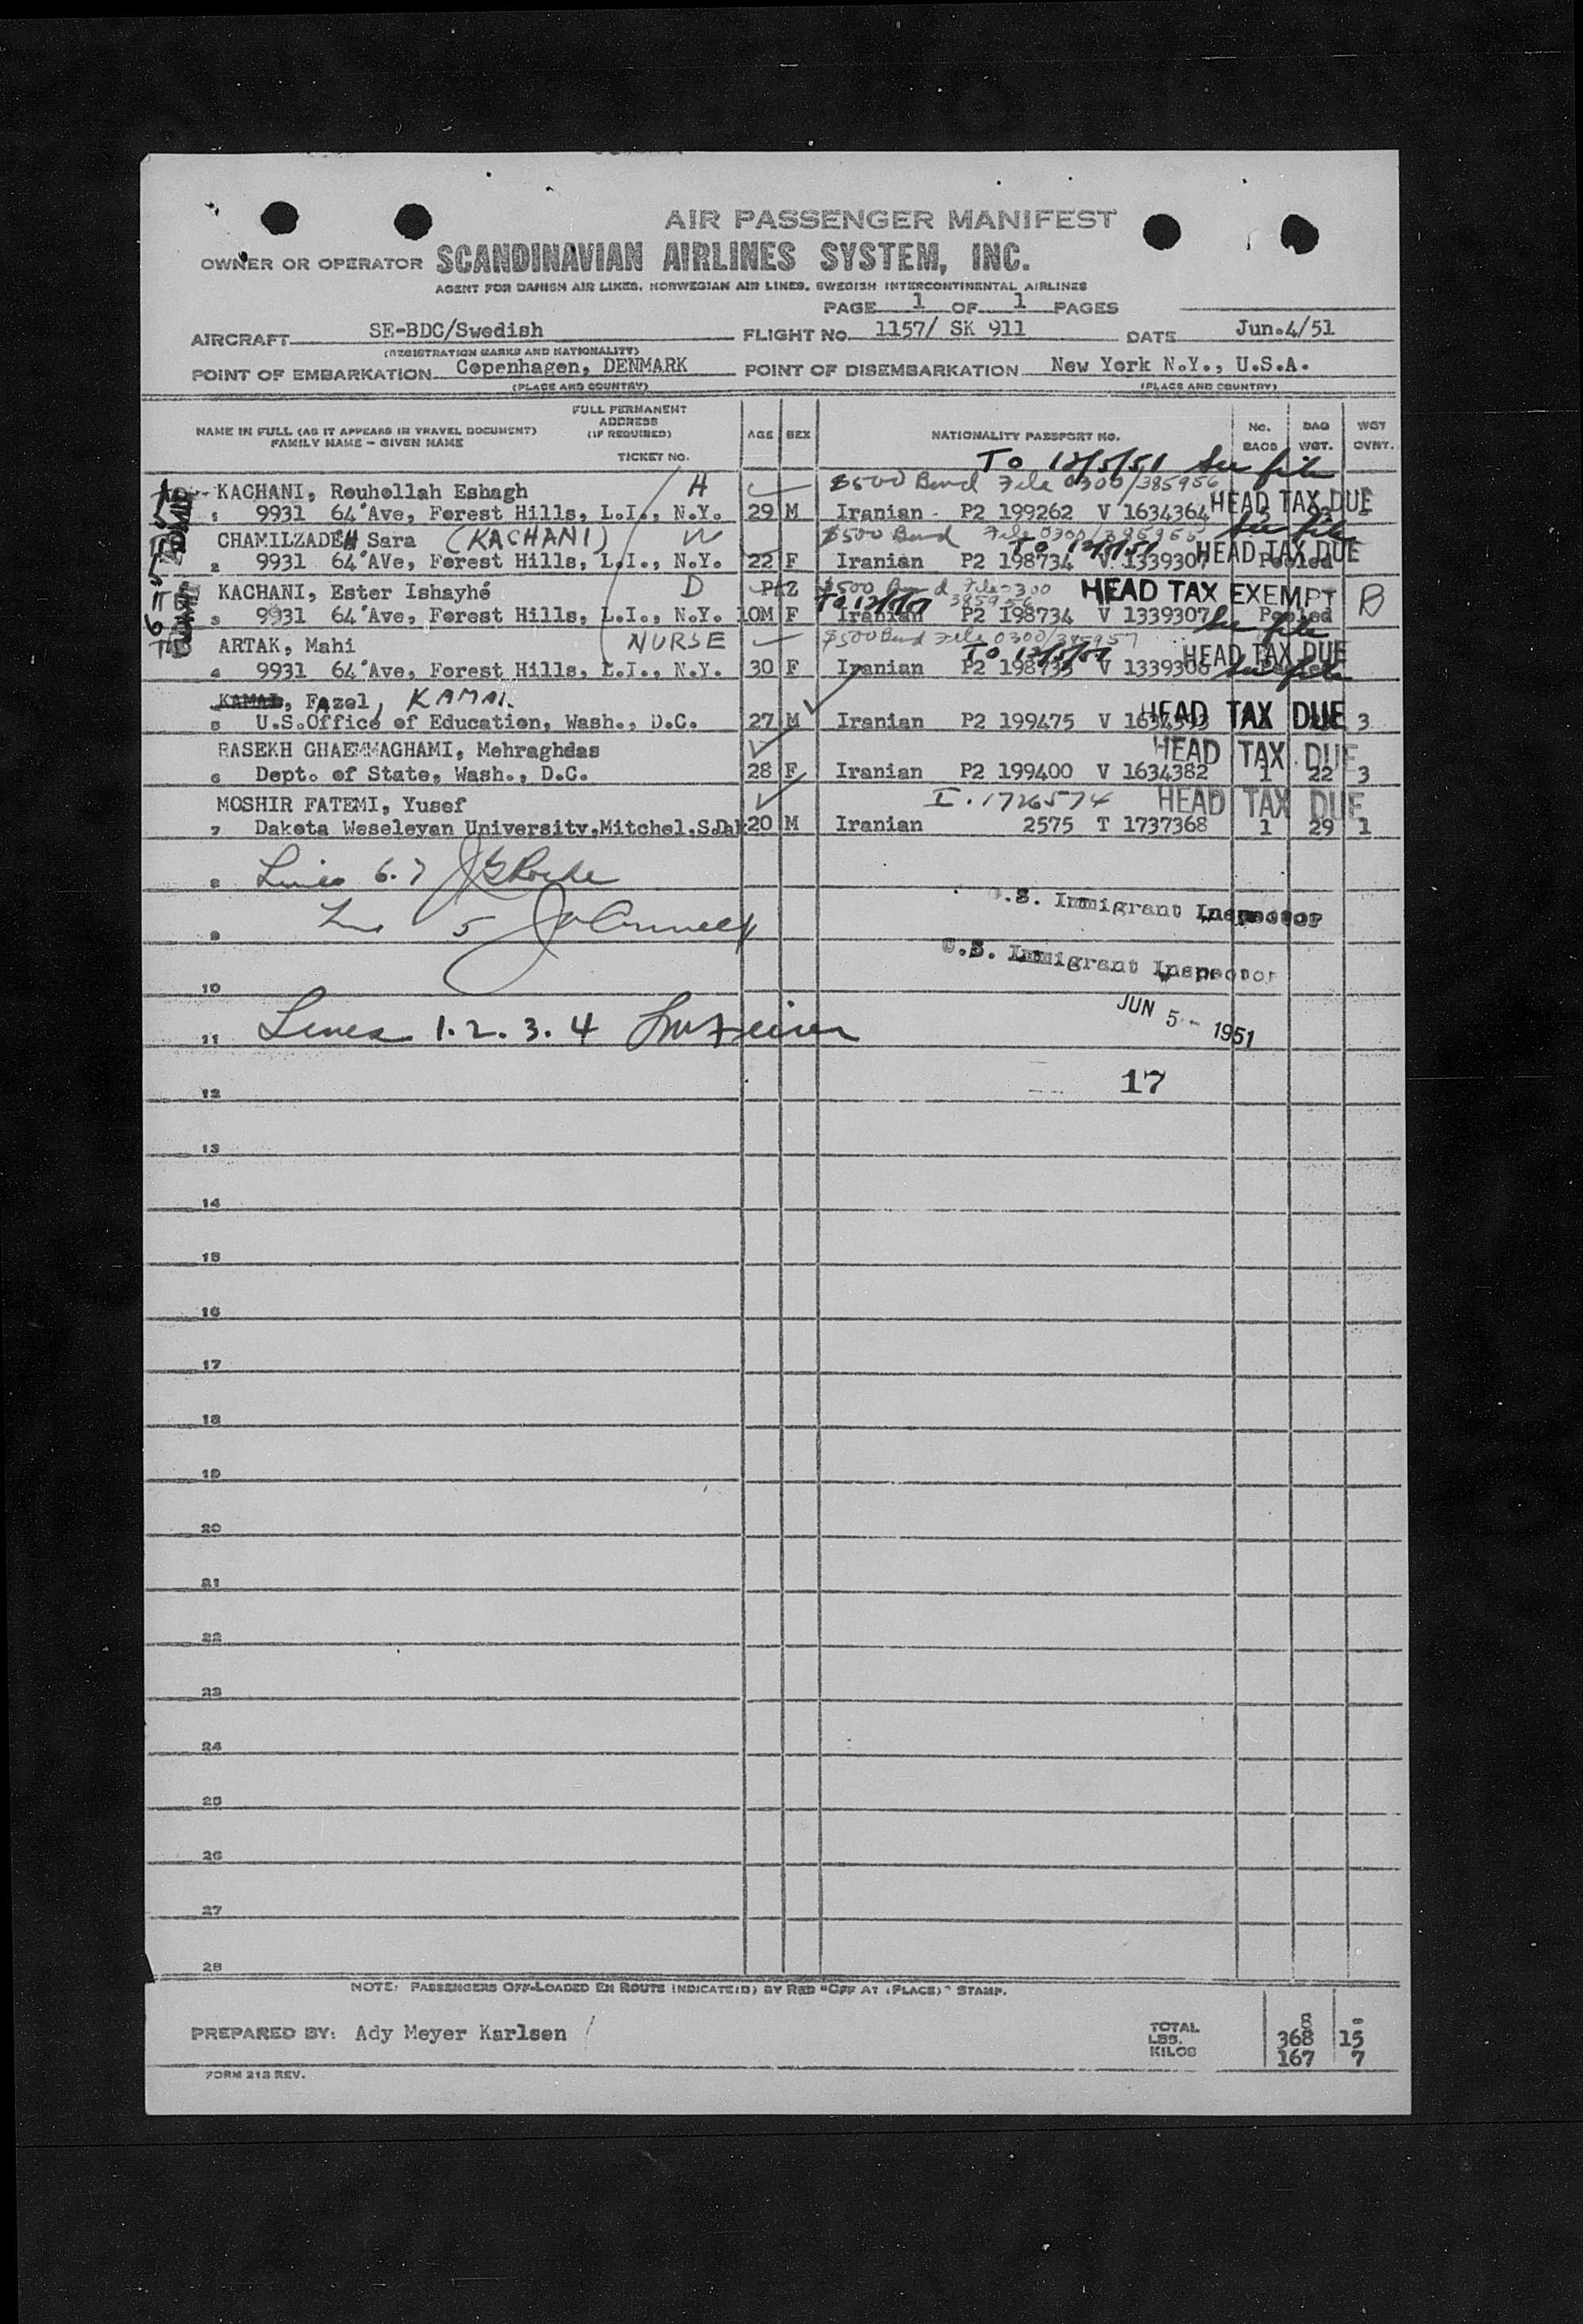 AIR PASSENGER MANIFEST
OWNER OR OPERATOR SCANDINAVIAN AIRLINES SYSTEM, INC.
AGENT FOR DANISH AIR LINES, NORWEGIAN AIR LINES, SWEDISH INTERCONTINENTAL AIRLINES
PAGE 1 OF 1 PAGES
AIRCRAFT SE-BDC/Swedish FLIGHT NO. 1157/ SK 911 DATE Jun.4/51
(REGISTRATION MARKS AND NATIONALITY)
POINT OF EMBARKATION Copenhagen, DENMARK POINT OF DISEMBARKATION New York N.Y., U.S.A.
(PLACE AND COUNTRY) (PLACE AND COUNTRY)
NAME IN FULL (AS IT APPEARS IN TRAVEL DOCUMENT) FAMILY NAME - GIVEN NAME
FULL PERMANENT ADDRESS (IF REQUIRED)
TICKET NO.
AGE SEX NATIONALITY PASSPORT NO. No. BAGS BAG WGT. WGT OVRT.
To 12/5/51 See file
KACHANI, Rouhollah Eshagh H $500 Bond File 0300/385956 HEAD TAX DUE
1 9931 64 Ave, Forest Hills, L.I., N.Y. 29 M Iranian P2 199262 V 1634364
CHAMILZADEH Sara (KACHANI) W $500 Bond File 0300/ See file
To HEAD TAX DUE
2 9931 64 AVe, Forest Hills, L.I., N.Y. 22 F Iranian P2 198734 V 1339307 Pooled
KACHANI, Ester Ishayhé D $500 Bond File 0300 385956 HEAD TAX EXEMPT B
3 9931 64 Ave, Forest Hills, L.I., N.Y. 10M F Iranian P2 198734 V 1339307 Pooled
See file
ARTAK, Mahi NURSE $500 Bond File 0300/385957 To 12/5/51 HEAD TAX DUE
4 9931 64 Ave, Forest Hills, L.I., N.Y. 30 F Iranian P2 198735 V 1339306 See file
KAMAL, Fazel, KAMAL
5 U.S.Office of Education, Wash., D.C. 27 M Iranian P2 199475 V HEAD TAX DUE 3
RASEKH GHAEMMAGHAMI, Mehraghdas HEAD TAX DUE
6 Dept. of State, Wash., D.C. 28 F Iranian P2 199400 V 1634382 1 22 3
MOSHIR FATEMI, Yusef I.1726574 HEAD TAX DUE
7 Dakota Weseleyan University,Mitchel,S.Dak 20 M Iranian 2575 T 1737368 1 29 1
8 Lines 6.7
U.S. Immigrant Inspector
9 5
U.S. Immigrant Inspector
10
JUN 5 - 1951
11 Lines 1.2.3.4
17
12
13
14
15
16
17
18
19
20
21
22
23
24
25
26
27
28
NOTE: PASSENGERS OFF-LOADED EN ROUTE INDICATE(D) BY RED "OFF AT (PLACE)" STAMP.
PREPARED BY: Ady Meyer Karlsen
TOTAL 8 -
LBS. 368 15
KILOS 167 7
FORM 213 REV.